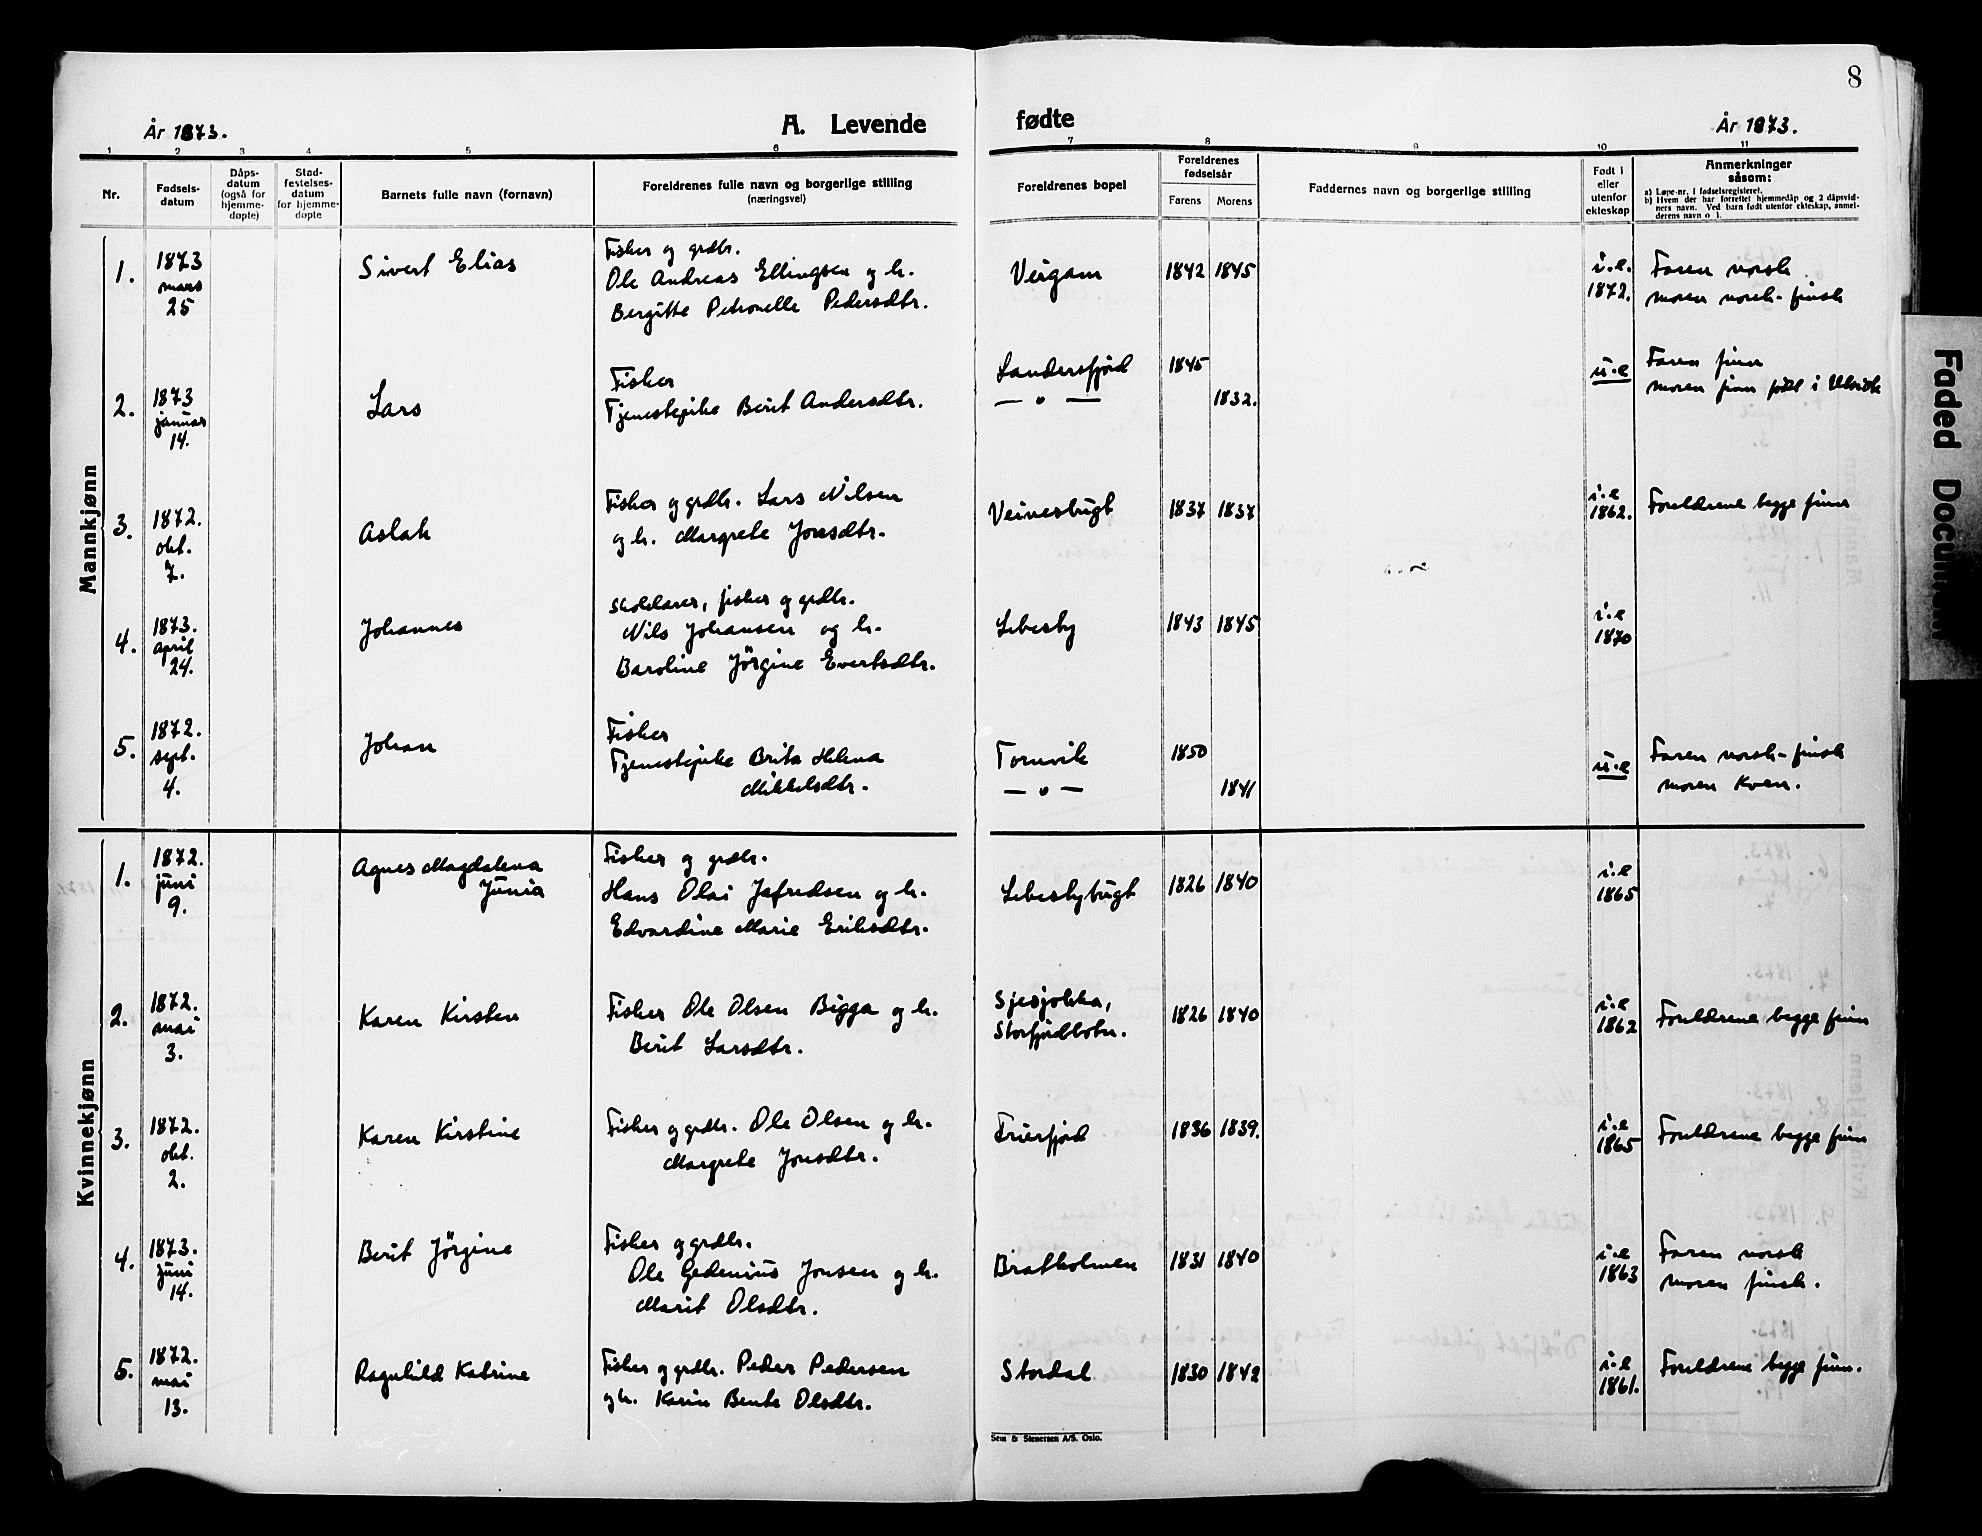 8
År 1873.
A. Levende
fødte
År 1873.
1 2 3 4 5 6 7 8 9 10 11
Nr.
Fødsels-
datum
Dåps-
datum
(også for
hjemme-
døpte)
Stad-
festelses-
datum
for hjemme-
døpte
Barnets fulle navn (fornavn)
Foreldrenes fulle navn og borgerlige stilling
(næringsvei)
Foreldrenes bopel
Foreldrenes
fødselsår
Farens Morens
Faddernes navn og borgerlige stilling
Født i
eller
utenfor
ekteskap
Anmerkninger
såsom:
a) Løpe-nr. i fødselsregisteret.
b) Hvem der har forrettet hjemmedåp og 2 dåpsvid-
ners navn. Ved barn født utenfor ekteskap, anmel-
derens navn o. l.
Mannkjønn
1.
1873
mars
25
Sivert Elias
Fisker og grdbr.
Ole Andreas Ellingsen og h.
Bergitte Petronelle Pedersdtr.
Veigam
1842 1845
i.e.
1872.
Faren norsk
moren norsk-finsk
2.
1873
januar
14.
Lars
Fisker
Tjenestepike Berit Andersdtr.
Landersfjord
— " —
1845
1832.
u.e
Faren finn
moren finn født i Utsjok
3.
1872.
okt.
7.
Aslak
Fisker og grdbr. Lars Nilsen
og h. Margrete Jonsdtr.
Veinesbugt
1837 1837
i.e
1862.
Foreldrene begge finner
4.
1873.
april
24.
Johannes
Skolelærer, fisker og grdbr.
Nils Johansen og h.
Baroline Jörgine Evertsdtr.
Lebesby
1843 1845
i.e
1870
5.
1872.
sept.
4.
Johan
Fisker
Tjenestepike Brita Helena
Mikkelsdtr.
Tornvik
— " —
1850
1841
u.e
Faren norsk-finsk
moren Kven.
Kvinnekjønn
1.
1872.
juni
9.
Agnes Magdalena
Junia
Fisker og grdbr.
Hans Olai Jafredsen og h.
Edvardine Marie Eriksdtr.
Lebesbybugt
1826 1840
i.e
1865
2.
1872.
mai
3.
Karen Kirsten
Fisker Ole Olsen Bigga og h.
Berit Larsdtr.
Sjesjokka,
Storfjordbotn.
1826 1840
i.e
1862
Foreldrene begge finner
3.
1872.
okt.
2.
Karen Kirstine
Fisker og grdbr. Ole Olsen og h.
Margrete Jonsdtr.
Friarfjord
1836 1839.
i.e
1865
Foreldrene begge finn
4.
1873.
juni
14.
Berit Jörgine
Fisker og grdbr.
Ole Gedenius Jonsen og h.
Marit Olsdtr.
Bratholmen
1831 1840
i.e
1863
Faren norsk
moren finsk.
5.
1872.
mai
13.
Ragnhild Katrine
Fisker og grdbr. Peder Pedersen
og h. Karin Bente Olsdtr.
Stordal
1830 1842
i.e
1861.
Foreldrene begge finn.
Sem & Stenersen A/S. Oslo.
Faded Document